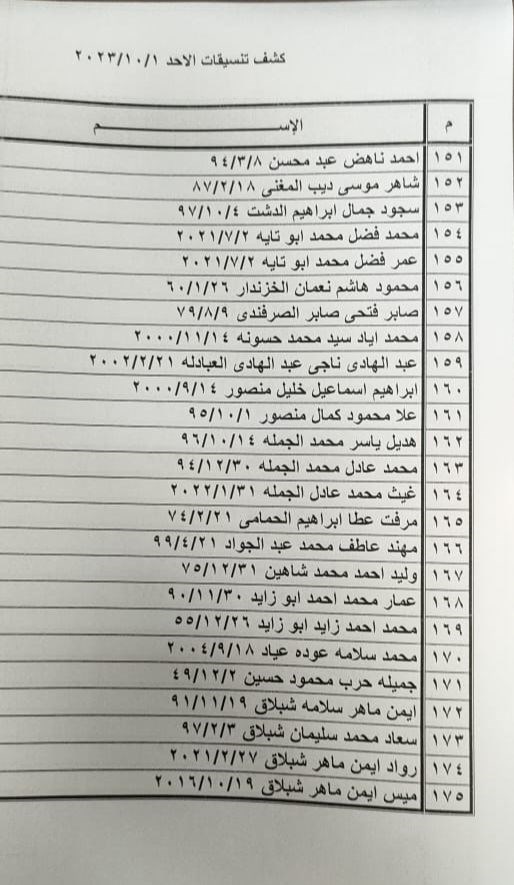 كشف تنسيقات الاحد ٢٠٢٣/١٠/١
م الإســـــــــــــم
١٥١ احمد ناهض عبد محسن ٩٤/٣/٨
١٥٢ شاهر موسى ديب المغنى ٨٧/٢/١٨
١٥٣ سجود جمال ابراهيم الدشت ٩٧/١٠/٤
١٥٤ محمد فضل محمد ابو تايه ٢٠٢١/٧/٢
١٥٥ عمر فضل محمد ابو تايه ٢٠٢١/٧/٢
١٥٦ محمود هاشم نعمان الخزندار ٦٠/١/٢٦
١٥٧ صابر فتحى صابر الصرفندى ٧٩/٨/٩
١٥٨ محمد اياد سيد محمد حسونه ٢٠٠٠/١١/١٤
١٥٩ عبد الهادى ناجى عبد الهادى العبادله ٢٠٠٢/٢/٢١
١٦٠ ابراهيم اسماعيل خليل منصور ٢٠٠٠/٩/١٤
١٦١ علا محمود كمال منصور ٩٥/١٠/١
١٦٢ هديل ياسر محمد الجمله ٩٦/١٠/١٤
١٦٣ محمد عادل محمد الجمله ٩٤/١٢/٣٠
١٦٤ غيث محمد عادل الجمله ٢٠٢٢/١/٣١
١٦٥ مرفت عطا ابراهيم الحمامى ٧٤/٢/٢١
١٦٦ مهند عاطف محمد عبد الجواد ٩٩/٤/٢١
١٦٧ وليد احمد محمد شاهين ٧٥/١٢/٣١
١٦٨ عمار محمد احمد ابو زايد ٩٠/١١/٣٠
١٦٩ محمد احمد زايد ابو زايد ٥٥/١٢/٢٦
١٧٠ محمد سلامه عوده عياد ٢٠٠٤/٩/١٨
١٧١ جميله حرب محمود حسين ٤٩/١٢/٢
١٧٢ ايمن ماهر سلامه شبلاق ٩١/١١/١٩
١٧٣ سعاد محمد سليمان شبلاق ٩٧/٢/٣
١٧٤ رواد ايمن ماهر شبلاق ٢٠٢١/٢/٢٧
١٧٥ ميس ايمن ماهر شبلاق ٢٠١٦/١٠/١٩